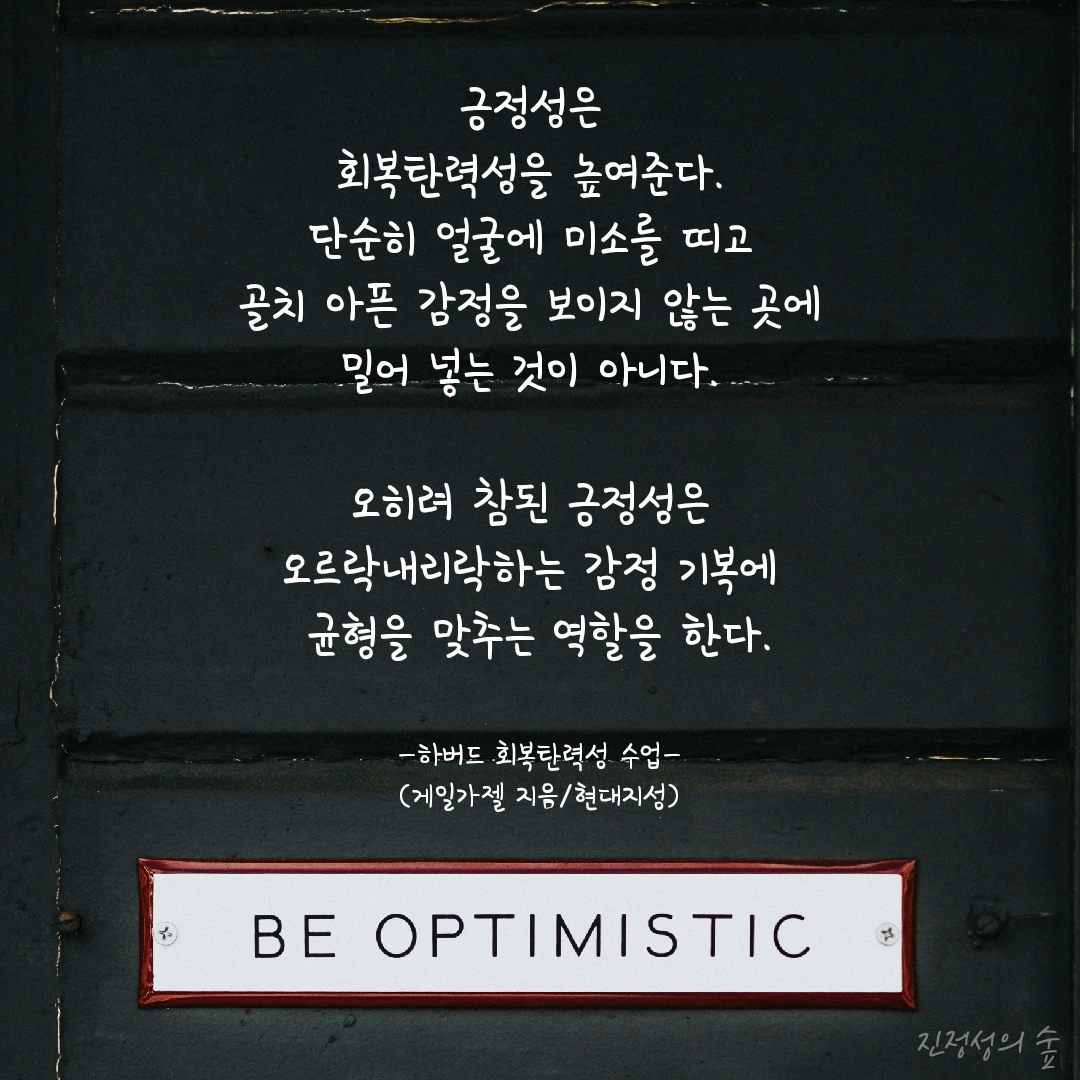 긍정성은
회복탄력성을 높여준다.
단순히 얼굴에 미소를 띠고
골치 아픈 감정을 보이지 않는 곳에
밀어 넣는 것이 아니다.
오히려 참된 긍정성은
오르락내리락하는 감정 기복에
균형을 맞추는 역할을 한다.
-하버드 회복탄력성 수업-
(게일가젤 지음/현대지성)
BE OPTIMISTIC
진정성의 숲